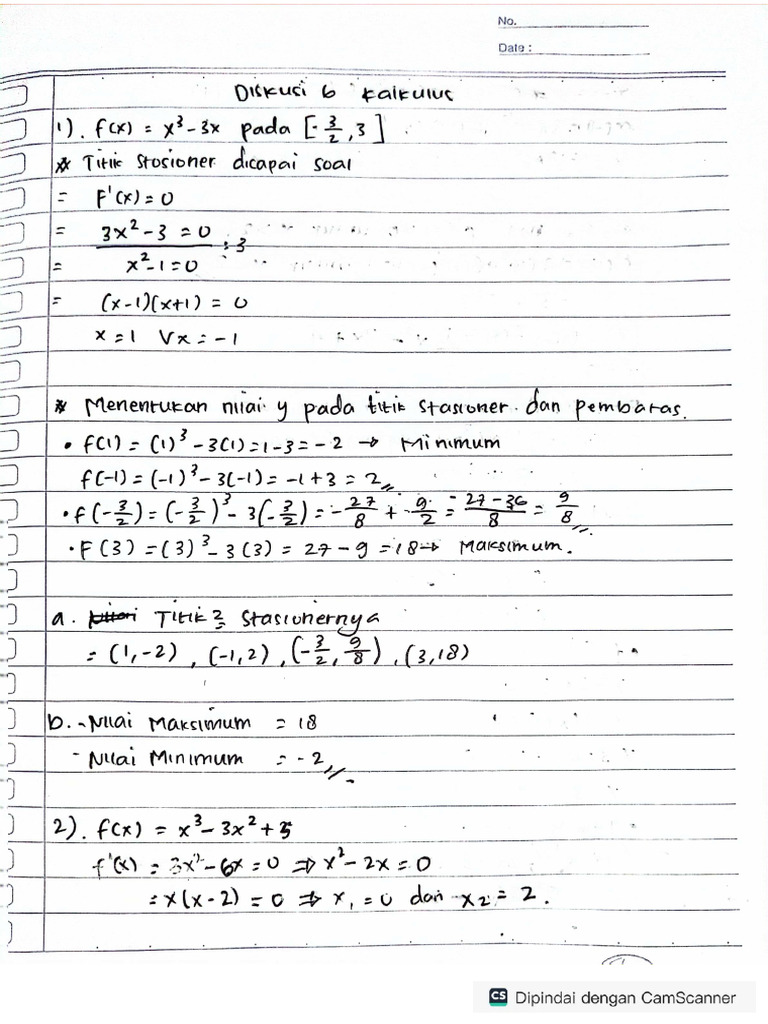 No.
Date :
Diskusi 6 Kalkulus
1). f(x) = x³ - 3x pada [-3/2, 3]
* Titik Stosioner dicapai soal
= F'(x) = 0
= 3x² - 3 = 0 : 3
= x² - 1 = 0
= (x-1)(x+1) = 0
x = 1 V x = -1
* Menentukan nilai y pada titik stasioner dan pembatas.
• f(1) = (1)³ - 3(1) = 1 - 3 = -2 → Minimum
f(-1) = (-1)³ - 3(-1) = -1 + 3 = 2
• f(-3/2) = (-3/2)³ - 3(-3/2) = -27/8 + -9/2 = -27-36/8 = 9/8
• F(3) = (3)³ - 3(3) = 27 - 9 = 18 → Maksimum.
a. Titik2 Stasionernya
= (1,-2), (-1,2), (-3/2, 9/8), (3,18)
b. - Nilai Maksimum = 18
- Nilai Minimum = -2
2). f(x) = x³ - 3x² + 5
f'(x) = 3x² - 6x = 0 ⇒ x² - 2x = 0
= x(x-2) = 0 ⇒ x₁ = 0 dan x2 = 2.
CS Dipindai dengan CamScanner